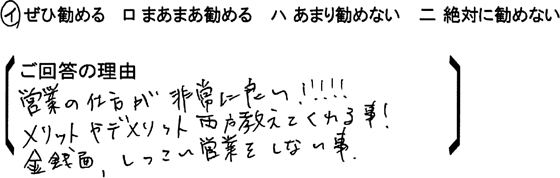 イ ぜひ勧める ロ まあまあ勧める ハ あまり勧めない ニ 絶対に勧めない
ご回答の理由
営業の仕方が 非常に良い!!!!!
メリットやデメリット両方教えてくれる事!
金銭面、しつこい営業をしない事.